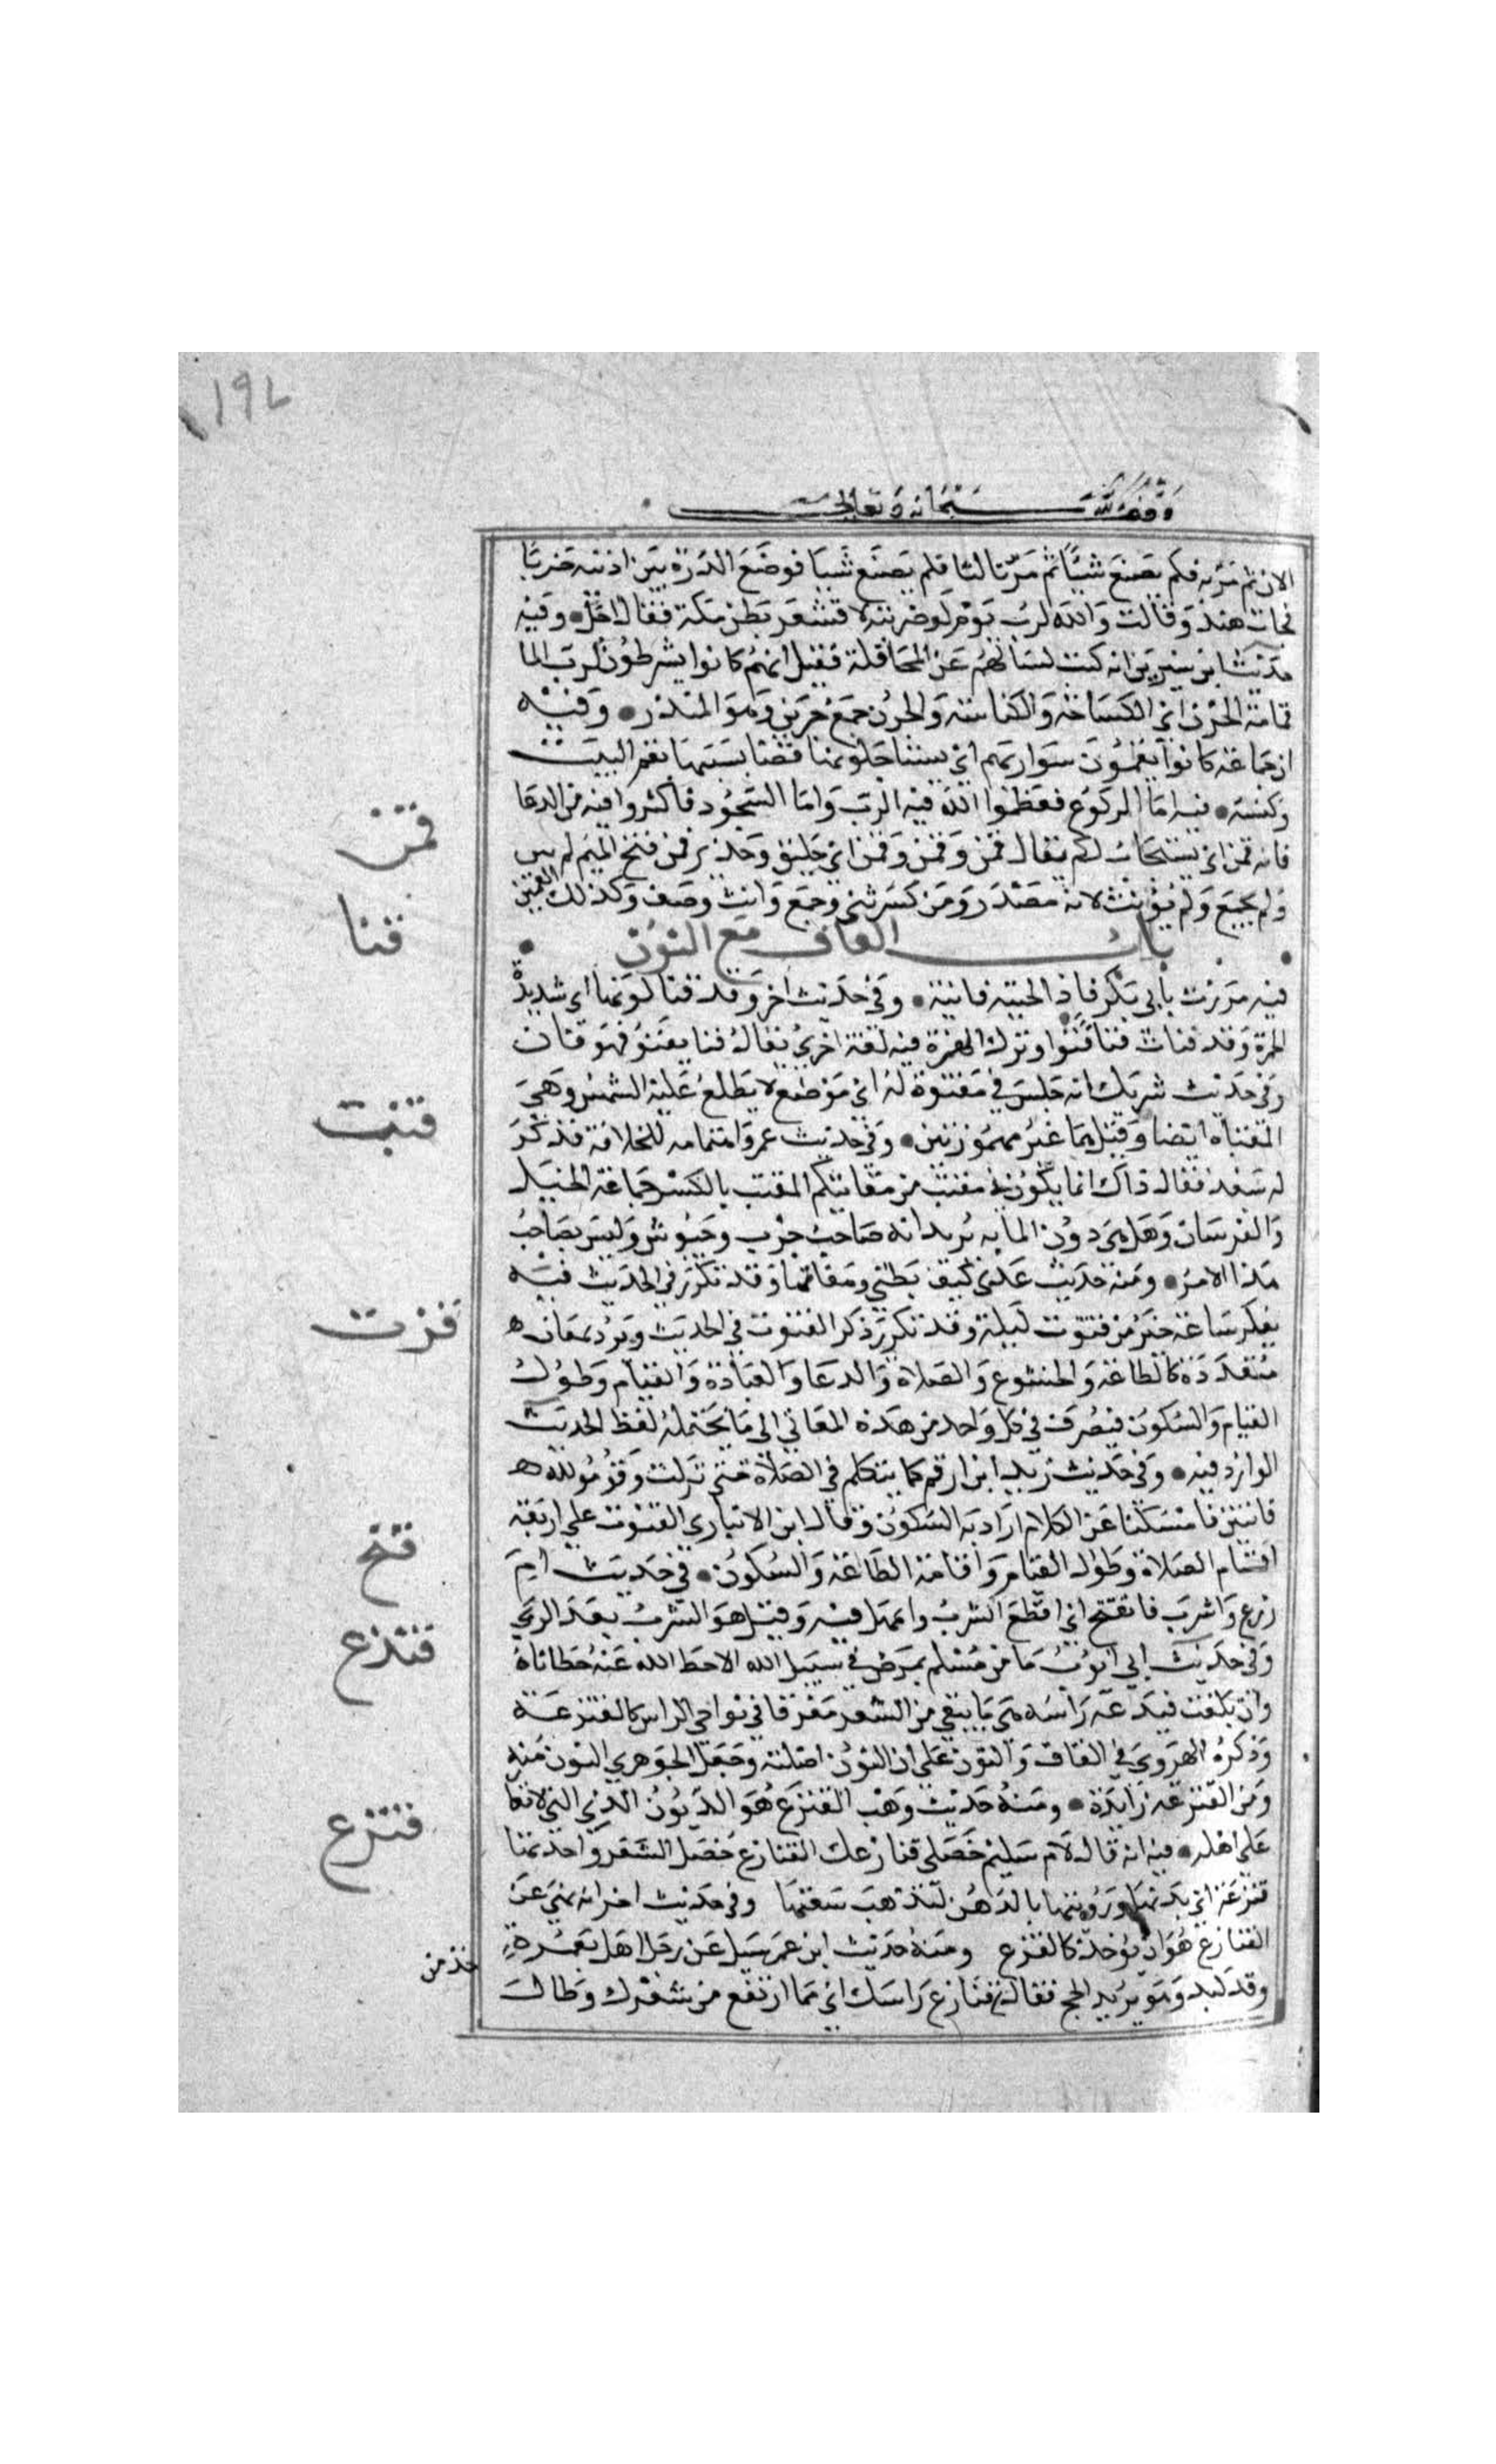 ١٩٢
وقف لله سبحانه وتعالى
الان ثم مر به فلم يصنع شيًا ثم مر ثالثا فلم يصنع شيا فوضع الدرة بين اذنيه ضربًا
فجات هند وقالت والله لرب يوم لو ضربته لاقشعر بطن مكة فقال اجل وفيه
حديث ابن سيرين انه كتب نسالهم عن المحاقلة فقيل انهم كانوا يشترطون لرب الما
قمامة الجرن اي الكساحة والكناسة والجرن جمع جرين وهو المنذر وفيه
ان جماعة كانوا يقمون شواربهم اي يستاصلونها قصا يشبهها بقم البيت
وكنسه فيه اما الركوع فعظموا الله فيه الرب واما السجود فاكثروا فيه من الدعا
فانه قمن ان يستجاب لكم يقال قمن وقمن وقمين اي خليق وجدير فمن فتح الميم لم يثن
ولم يجمع ولم يؤنث لانه مصدر ومن كسر ثنى وجمع وانث وصف وكذلك القمين
قمن
باب القاف مع النون
قنا
فيه مررت بابي بكر فاذا لحيته قانية وفي حديث اخر وقد قنا لونها اي شديدة
الحمرة وقد قنات تقنا قنوا وترك الهمزة فيه لغة اخرى يقال قنا يقنو فهو قان
وفي حديث شريك انه جلس في مقنوة له اي موضع لا يطلع عليه الشمس وهي
قنب
المقناه ايضا وقيل هما غير مهموزتين وفي حديث عمر واهتمامه للخلافة فذكر
له سعد فقال ذاك انما يكون في مقنب من مقانبكم المقنب بالكسر جماعة الخيل
والفرسان وهل هي دون الماية يريد انه صاحب حرب وجيوش وليس بصاحب
هذا الامر ومنه حديث عدي كيف بطئي ومقانبها وقد تكرر في الحديث فيه
قنت
تفكر ساعة خير من قنوت ليلة وقد تكرر ذكر القنوت في الحديث ويرد بمعان
متعددة كالطاعة والخشوع والصلاة والدعا والعبادة والقيام وطول
القيام والسكون فيصرف في كل واحد من هذه المعاني الى ما يحتمله لفظ الحديث
الوارد فيه وفي حديث زيد ابن ارقم كنا نتكلم في الصلاة حتى نزلت وقوموا لله
قانتين فامسكنا عن الكلام اراد به السكون وقال ابن الانباري القنوت على اربعة
قنح
اقسام الصلاة وطول القيام واقامة الطاعة والسكون في حديث ام
زرع واشرب فاتقنح اي اقطع الشرب واتمهل فيه وقيل هو الشرب بعد الري
قنذع
وفي حديث ابي ايوب ما من مسلم يمرض في سبيل الله الا حط الله عنه خطاياه
وان بلغت قنذعة راسه هي ما يبقي من الشعر مفرقا في نواحي الراس كالقنزعة
وذكره الهروي في القاف والنون على ان النون اصلية وجعل الجوهري النون منه
ومن القنزعة زايدة ومنه حديث وهب القنزع هو الديوث الذي لا يغار
قنزع
على اهله فيه انه قال لام سليم خضلي قنازعك القنازع خصل الشعر واحدتها
قنزعة اي نديها ورويها بالدهن ليذهب شعثها وفي حديث اخر انه نهى عن
القنازع هو ان يؤخذ كالقزع ومنه حديث ابن عمر سيل عن رجل اهل بعمرة
خذ من
وقد لبد وهو يريد الحج فقال قنازع راسك اي مما ارتفع من شعرك وطال